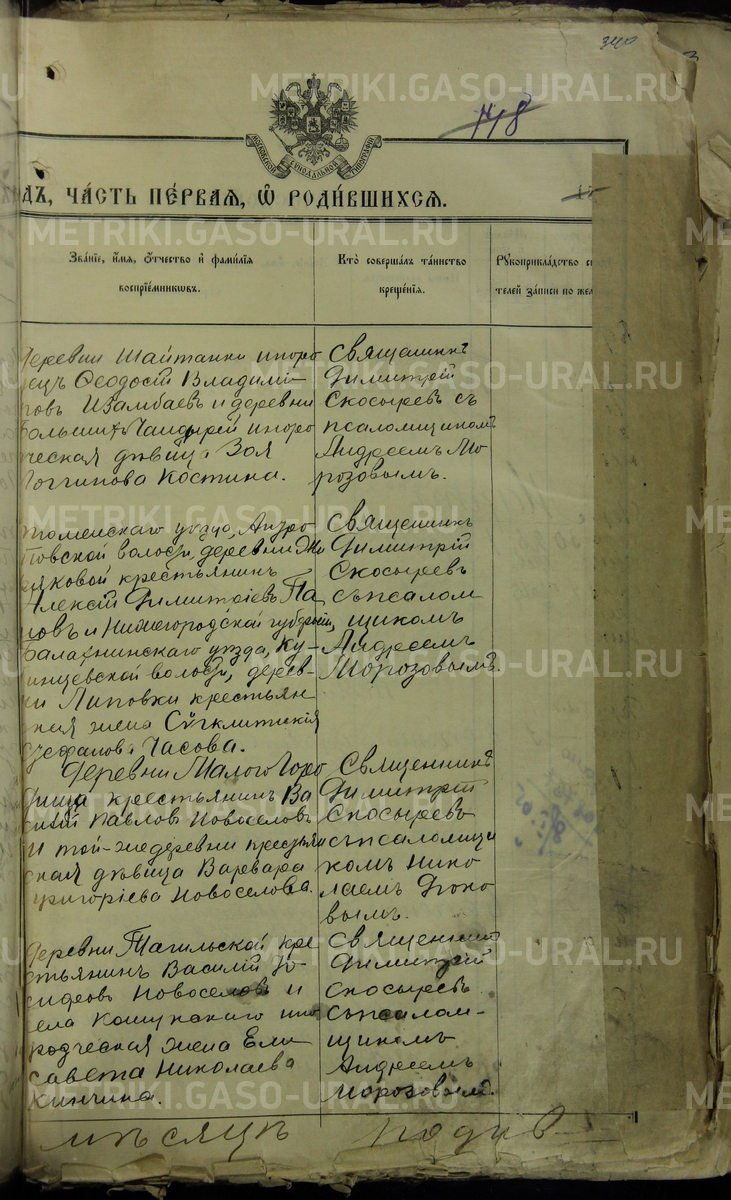 340
3
METRIKI.GASO-URAL.RU
718
МОСКОВСКОЙ СѴНОДАЛЬНОЙ ТИПОГРАФІИ
ДЪ, ЧА́СТЬ ПЕ́РВАЯ, Ѽ РОДИ́ВШИХСЯ.
Зва́нїе, и҆́мѧ, ѻ҆́тчество и҆ фами́лїѧ
воспрїе́мникѡвъ.
Кто̀ соверша́лъ та́инство
креще́нїѧ.
Рꙋкоприкла́дство с
телей за́писи по жел
деревни Шайтанки иноро
децъ Ѳеодосій Владимі-
ровъ Изамбаевъ и деревни
иноро
ческая дѣвица Зоя
Логгинова Костина.
Священникъ
Димитрій
Скосыревъ съ
псаломщикомъ
Андреемъ Мо-
розовымъ.
уѣзда,
волости, деревни
крестьянинъ
Алексій Димитріевъ Па
повъ и Нижегородской губерніи,
Балахнинскаго уѣзда, Ку-
волости, дерев-
ни Липовки крестьян-
ская жена
Часова.
Священникъ
Димитрій
Скосыревъ
съ псалом
щикомъ
Андреемъ
Морозовымъ.
Деревни Малого Горо
дища крестьянинъ Ва
силій Павловъ Новоселовъ
и той-же деревни крестьян
ская дѣвица Варвара
Григоріева Новоселова.
Священникъ
Димитрій
Скосыревъ
съ псаломщи
комъ Нико-
лаемъ
вымъ.
деревни Тагильской кре
стьянинъ Василій
Новоселовъ и
села Кошукскаго ино
родческая жена Ели
савета Николаева
Кинчина.
Священникъ
Димитрій
Скосыревъ
съ псалом-
щикомъ
Андреемъ
Морозовымъ.
мѣсяцъ